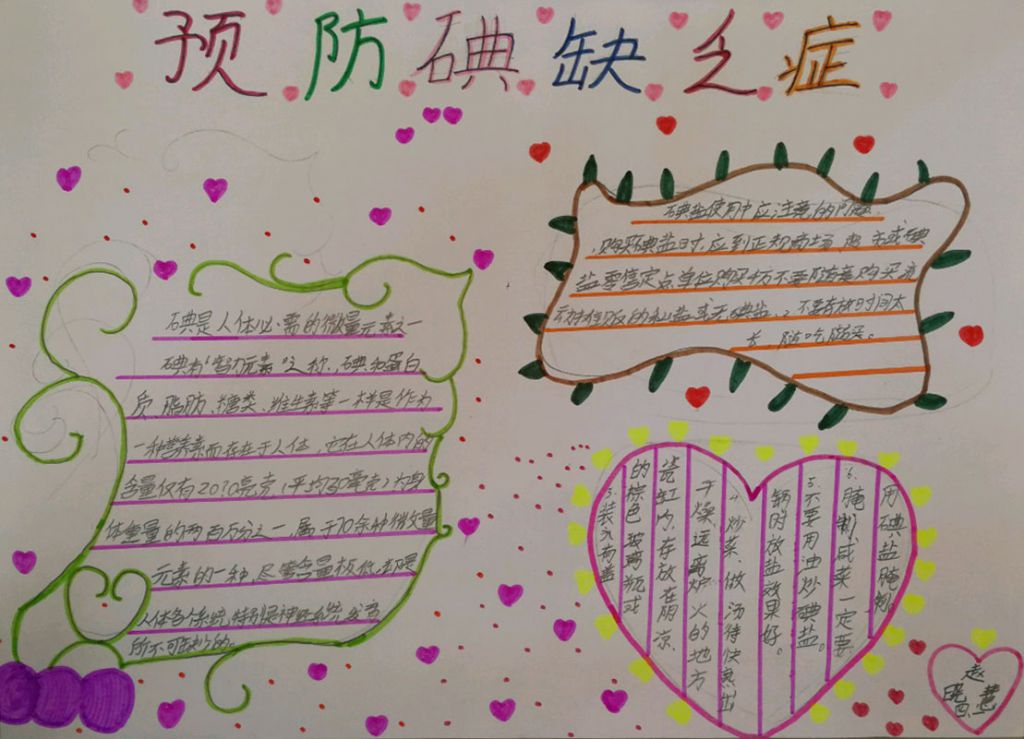 预防碘缺乏症
碘是人体必需的微量元素之一
碘有“智力元素”之称、碘和蛋白
质、脂肪、糖类、维生素等一样是作为
一种营养素而存在于人体,它在人体内的
含量仅有20?0毫克(平均30毫克)为身
体重量的两百万分之一,属于70余种微量
元素的一种,尽管含量极低,却是
人体各个系统,特别是神经系统发育
所不可缺少的。
碘盐使用中应注意的问题
购买碘盐时,应到正规商场
盐零售定点单位购买千万不要随意购买
贩的私盐或无碘盐,2、不要存放时间太
长,随吃随买。
3、装入有盖
的棕色玻璃瓶或
瓷缸内,存放在阴凉、
干燥、远离炉火的地方
4、炒菜、做汤待快熟出
锅时放盐效果好。
5、不要用油炒碘盐。
6、腌制咸菜一定要
用碘盐腌制。
赵
晓慧
四、二